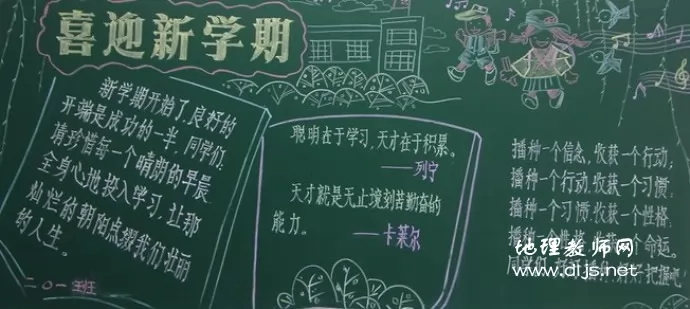 喜迎新学期
新学期开始了,良好的
开端是成功的一半,同学们,
请珍惜每一个晴朗的早晨
全身心地投入学习,让那
灿烂的朝阳点缀我们壮丽
的人生。
二〇一 班
聪明在于学习,天才在于积累。
——列宁
天才就是无止境刻苦勤奋的
能力。
——卡莱尔
播种一个信念,收获一个行动;
播种一个行动,收获一个习惯;
播种一个习惯,收获一个性格;
播种一个性格,收获一个命运。
同学们,好好把握吧
地理教师网
www.dljs.net